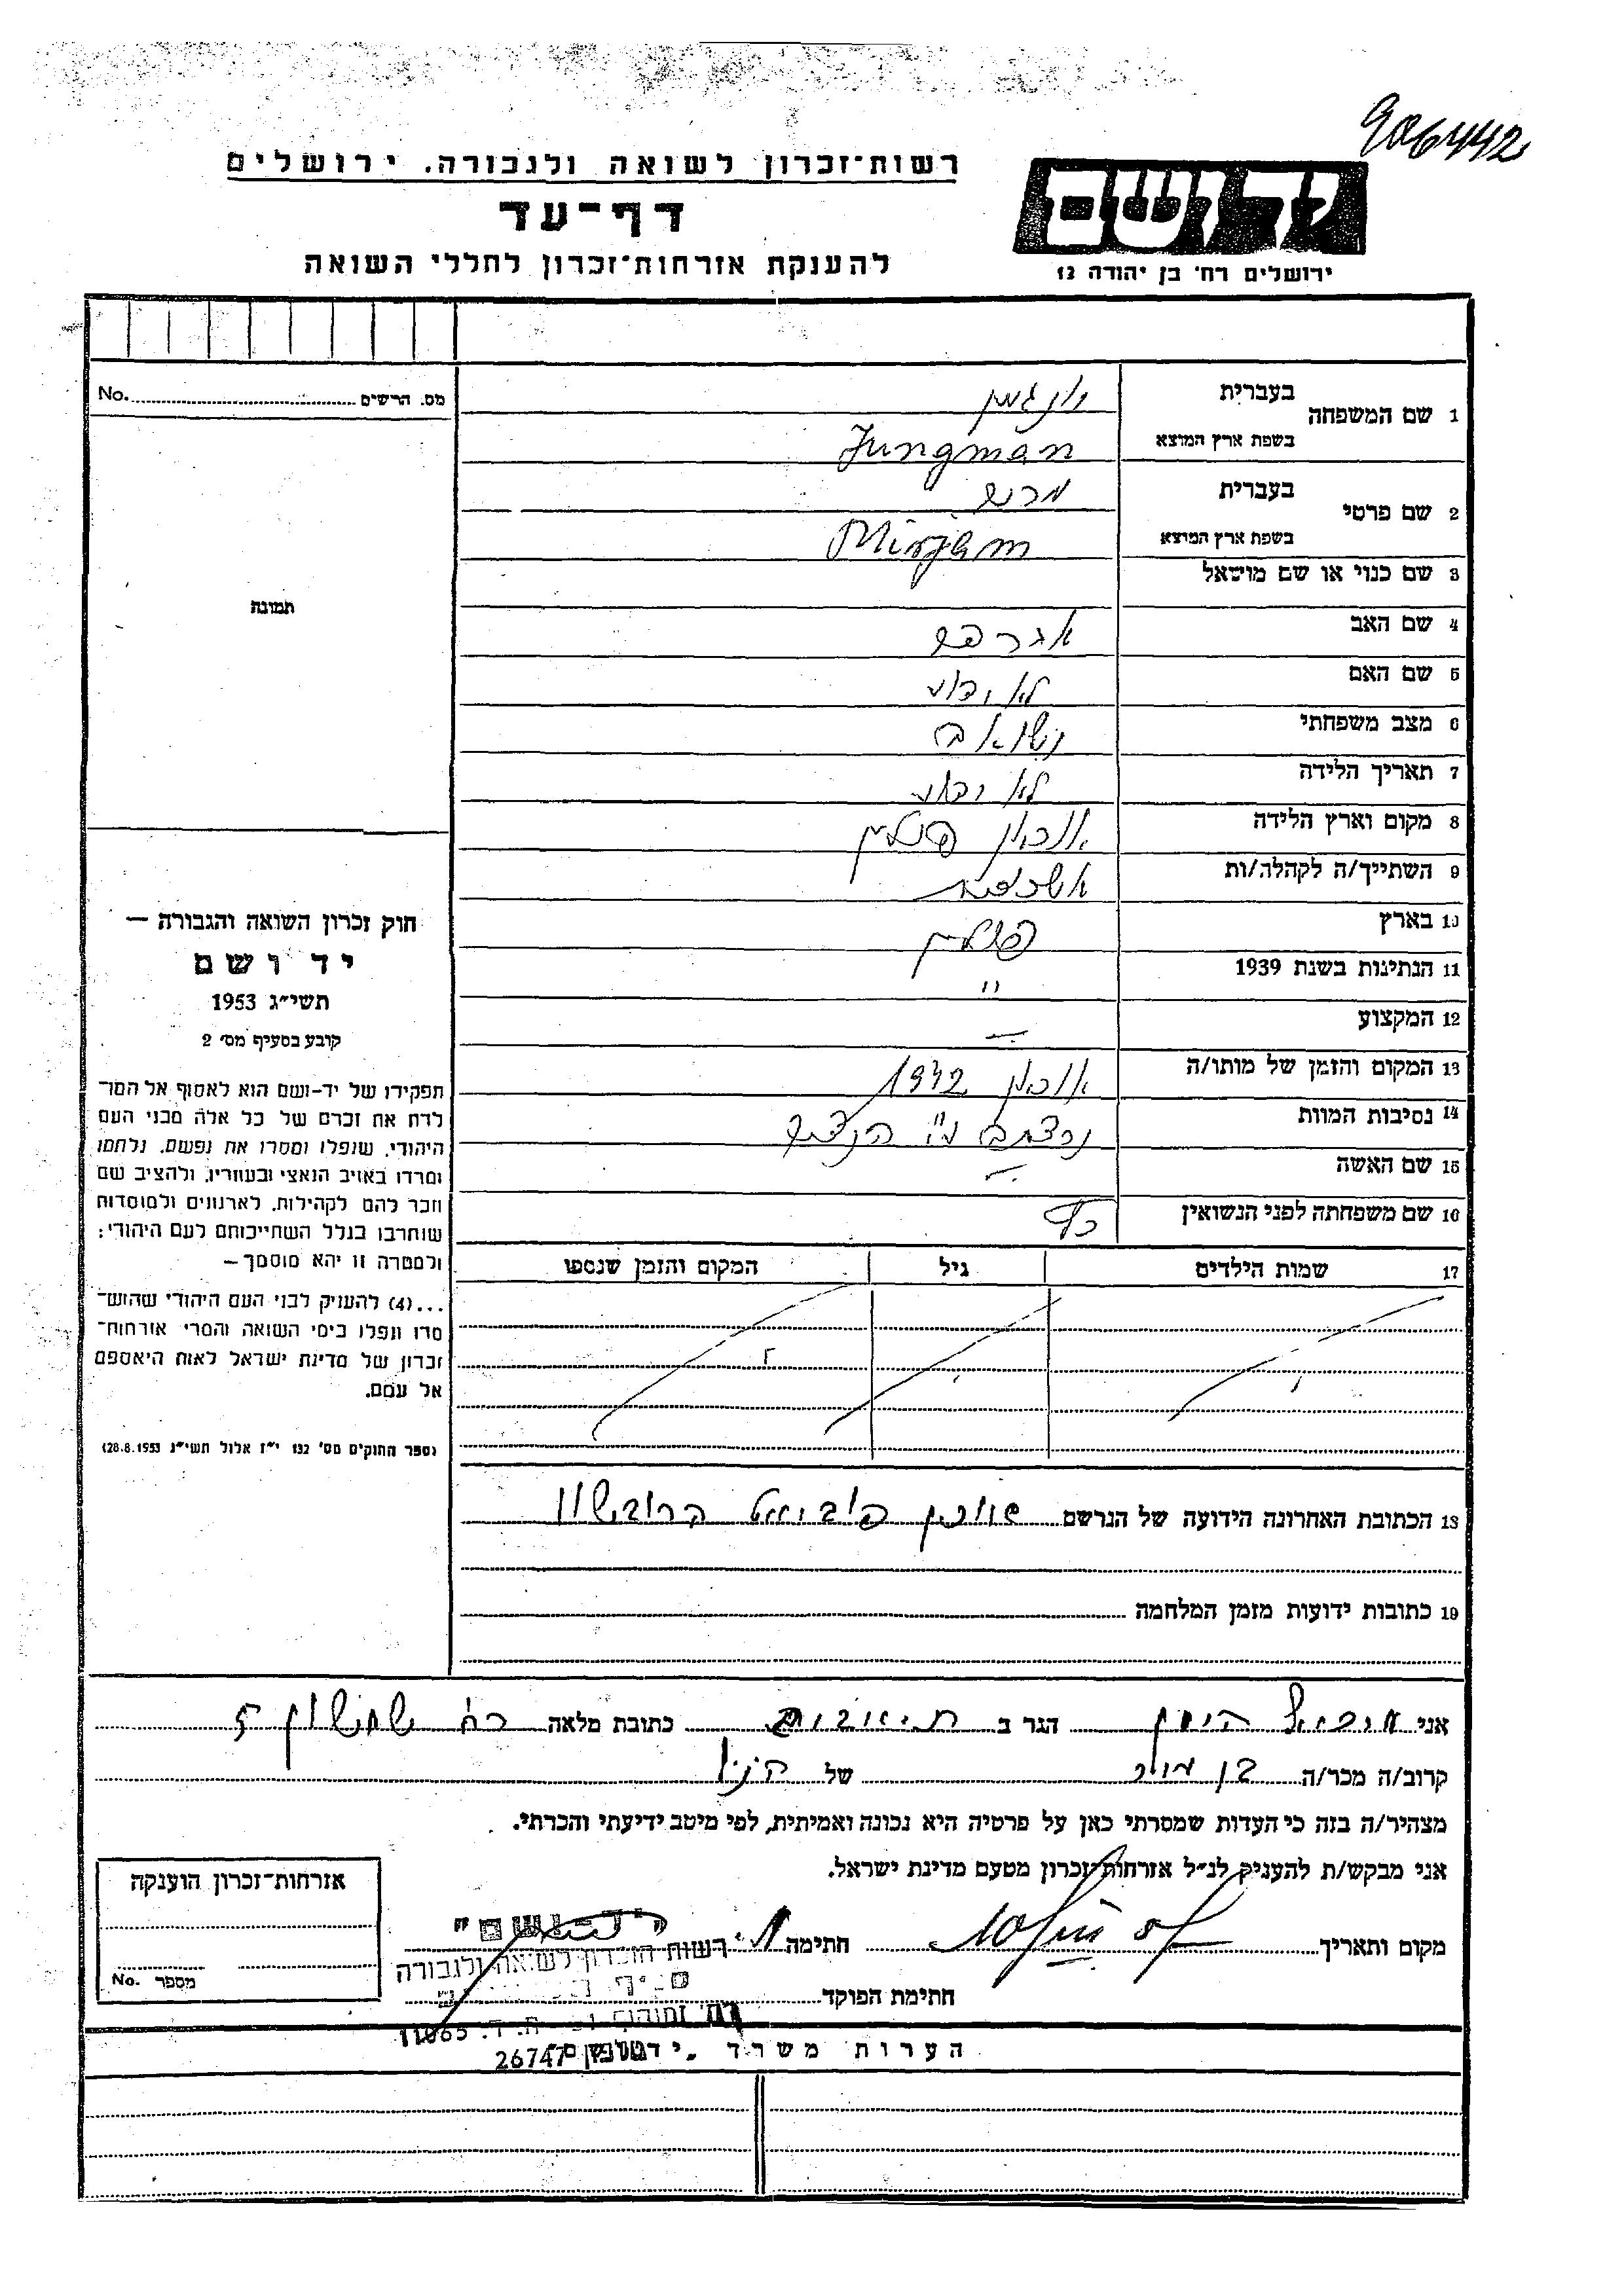 906442
רשות־זכרון לשואה ולגבורה. ירושלים
דף־עד
להענקת אזרחות־זכרון לחללי השואה
ירושלים רח׳ בן יהודה 12
מס. הרשים No.
תמונה
1 שם המשפחה
בעברית יונגמן
בשפת ארץ המוצא Jungman
2 שם פרטי
בעברית מרים
בשפת ארץ המוצא Mirjam
3 שם כנוי או שם מושאל
4 שם האב אברהם
5 שם האם לא ידוע
6 מצב משפחתי נשואה
7 תאריך הלידה לא ידוע
8 מקום וארץ הלידה פולין
9 השתייך/ה לקהלה/ות
10 בארץ פולין
11 הנתינות בשנת 1939 "
12 המקצוע —
13 המקום והזמן של מותו/ה 1942
14 נסיבות המוות נרצחה ע"י הנאצים
15 שם האשה —
16 שם משפחתה לפני הנשואין
17 שמות הילדים גיל המקום והזמן שנספו
18 הכתובת האחרונה הידועה של הנרשם
19 כתובות ידועות מזמן המלחמה
חוק זכרון השואה והגבורה —
יד ושם
תשי״ג 1953
קובע בסעיף מס׳ 2
תפקידו של יד-ושם הוא לאסוף אל המו־
לדת את זכרם של כל אלה מבני העם
היהודי, שנפלו ומסרו את נפשם, נלחמו
ומרדו באויב הנאצי ובעוזריו, ולהציב שם
וזכר להם לקהילות, לארגונים ולמוסדות
שוחרבו בגלל השתייכותם לעם היהודי;
ולמטרה זו יהא מוסמך —
...(4) להעניק לבני העם היהודי שהוש־
מדו ונפלו בימי השואה והמרי אזרחות־
זכרון של מדינת ישראל לאות היאספם
אל עמם.
(ספר החוקים מס׳ 132 י״ז אלול תשי״ג 28.8.1953)
אני הגר ב כתובת מלאה רח שמשון 5
קרוב/ה מכר/ה בן דוד של הנ״ל
מצהיר/ה בזה כי העדות שמסרתי כאן על פרטיה היא נכונה ואמיתית, לפי מיטב ידיעתי והכרתי.
אני מבקש/ת להעניק לנ״ל אזרחות־זכרון מטעם מדינת ישראל.
מקום ותאריך חתימה
"יד-ושם"
רשות הזכרון לשואה ולגבורה
חתימת הפוקד
ת. ד. 11065
26747
אזרחות־זכרון הוענקה
מספר No.
הערות משרד „יד ושם״